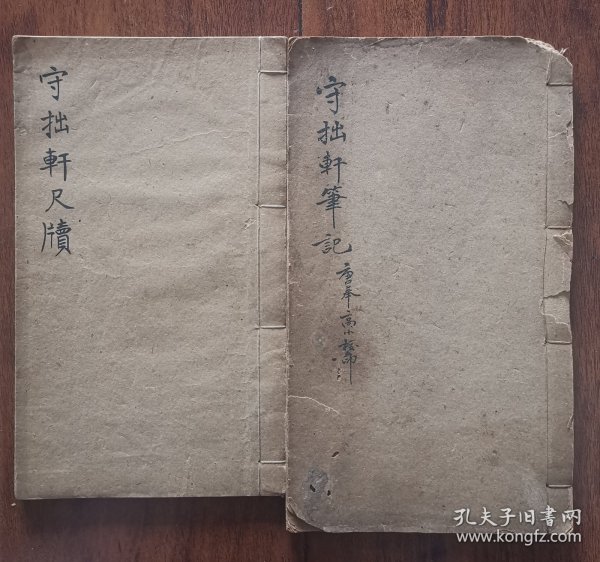 守拙軒尺牘
守拙軒筆記
孔夫子旧书网
www.kongfz.com